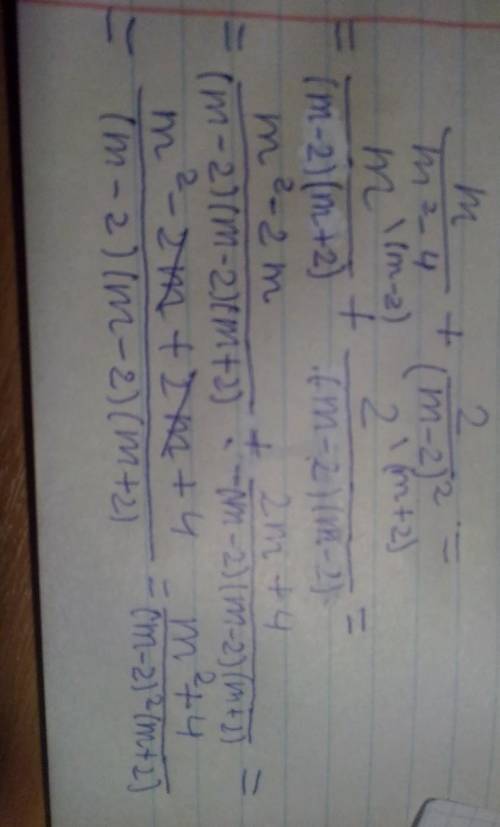 m/(m²-4) + 2/(m-2)² =
= m\(m-2)/((m-2)(m+2)) + 2\(m+2)/((m-2)(m-2)) =
= (m²-2m)/((m-2)(m-2)(m+2)) + (2m+4)/((m-2)(m-2)(m+2)) =
= (m²-2m+2m+4)/((m-2)(m-2)(m+2)) = (m²+4)/((m-2)²(m+2))